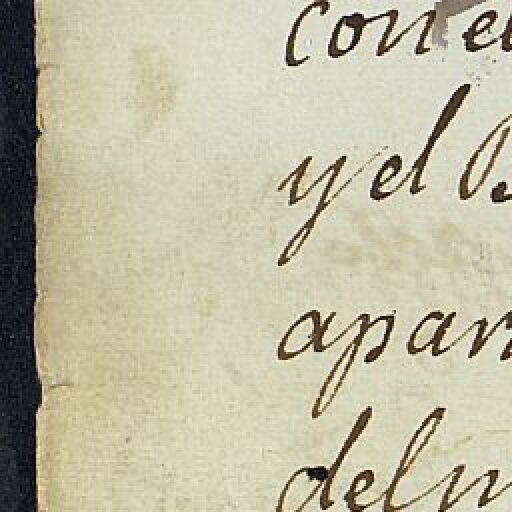 con el
y el
apar
del